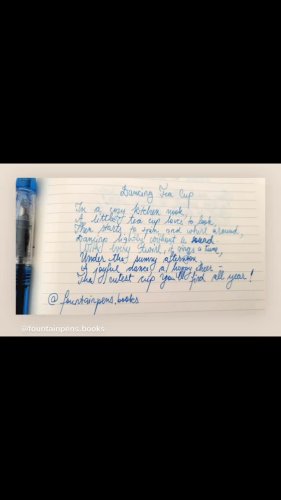 Dancing Tea Cup
In a cozy kitchen nook,
A little tea cup loves to look,
Then starts to spin, and whirl around,
Dancing lightly without a sound
With every twirl, it sings a tune,
Under the sunny afternoon,
A joyful dance, a happy cheer
The cutest cup you'll find all year!
@fountainpens.books
@fountainpens.books